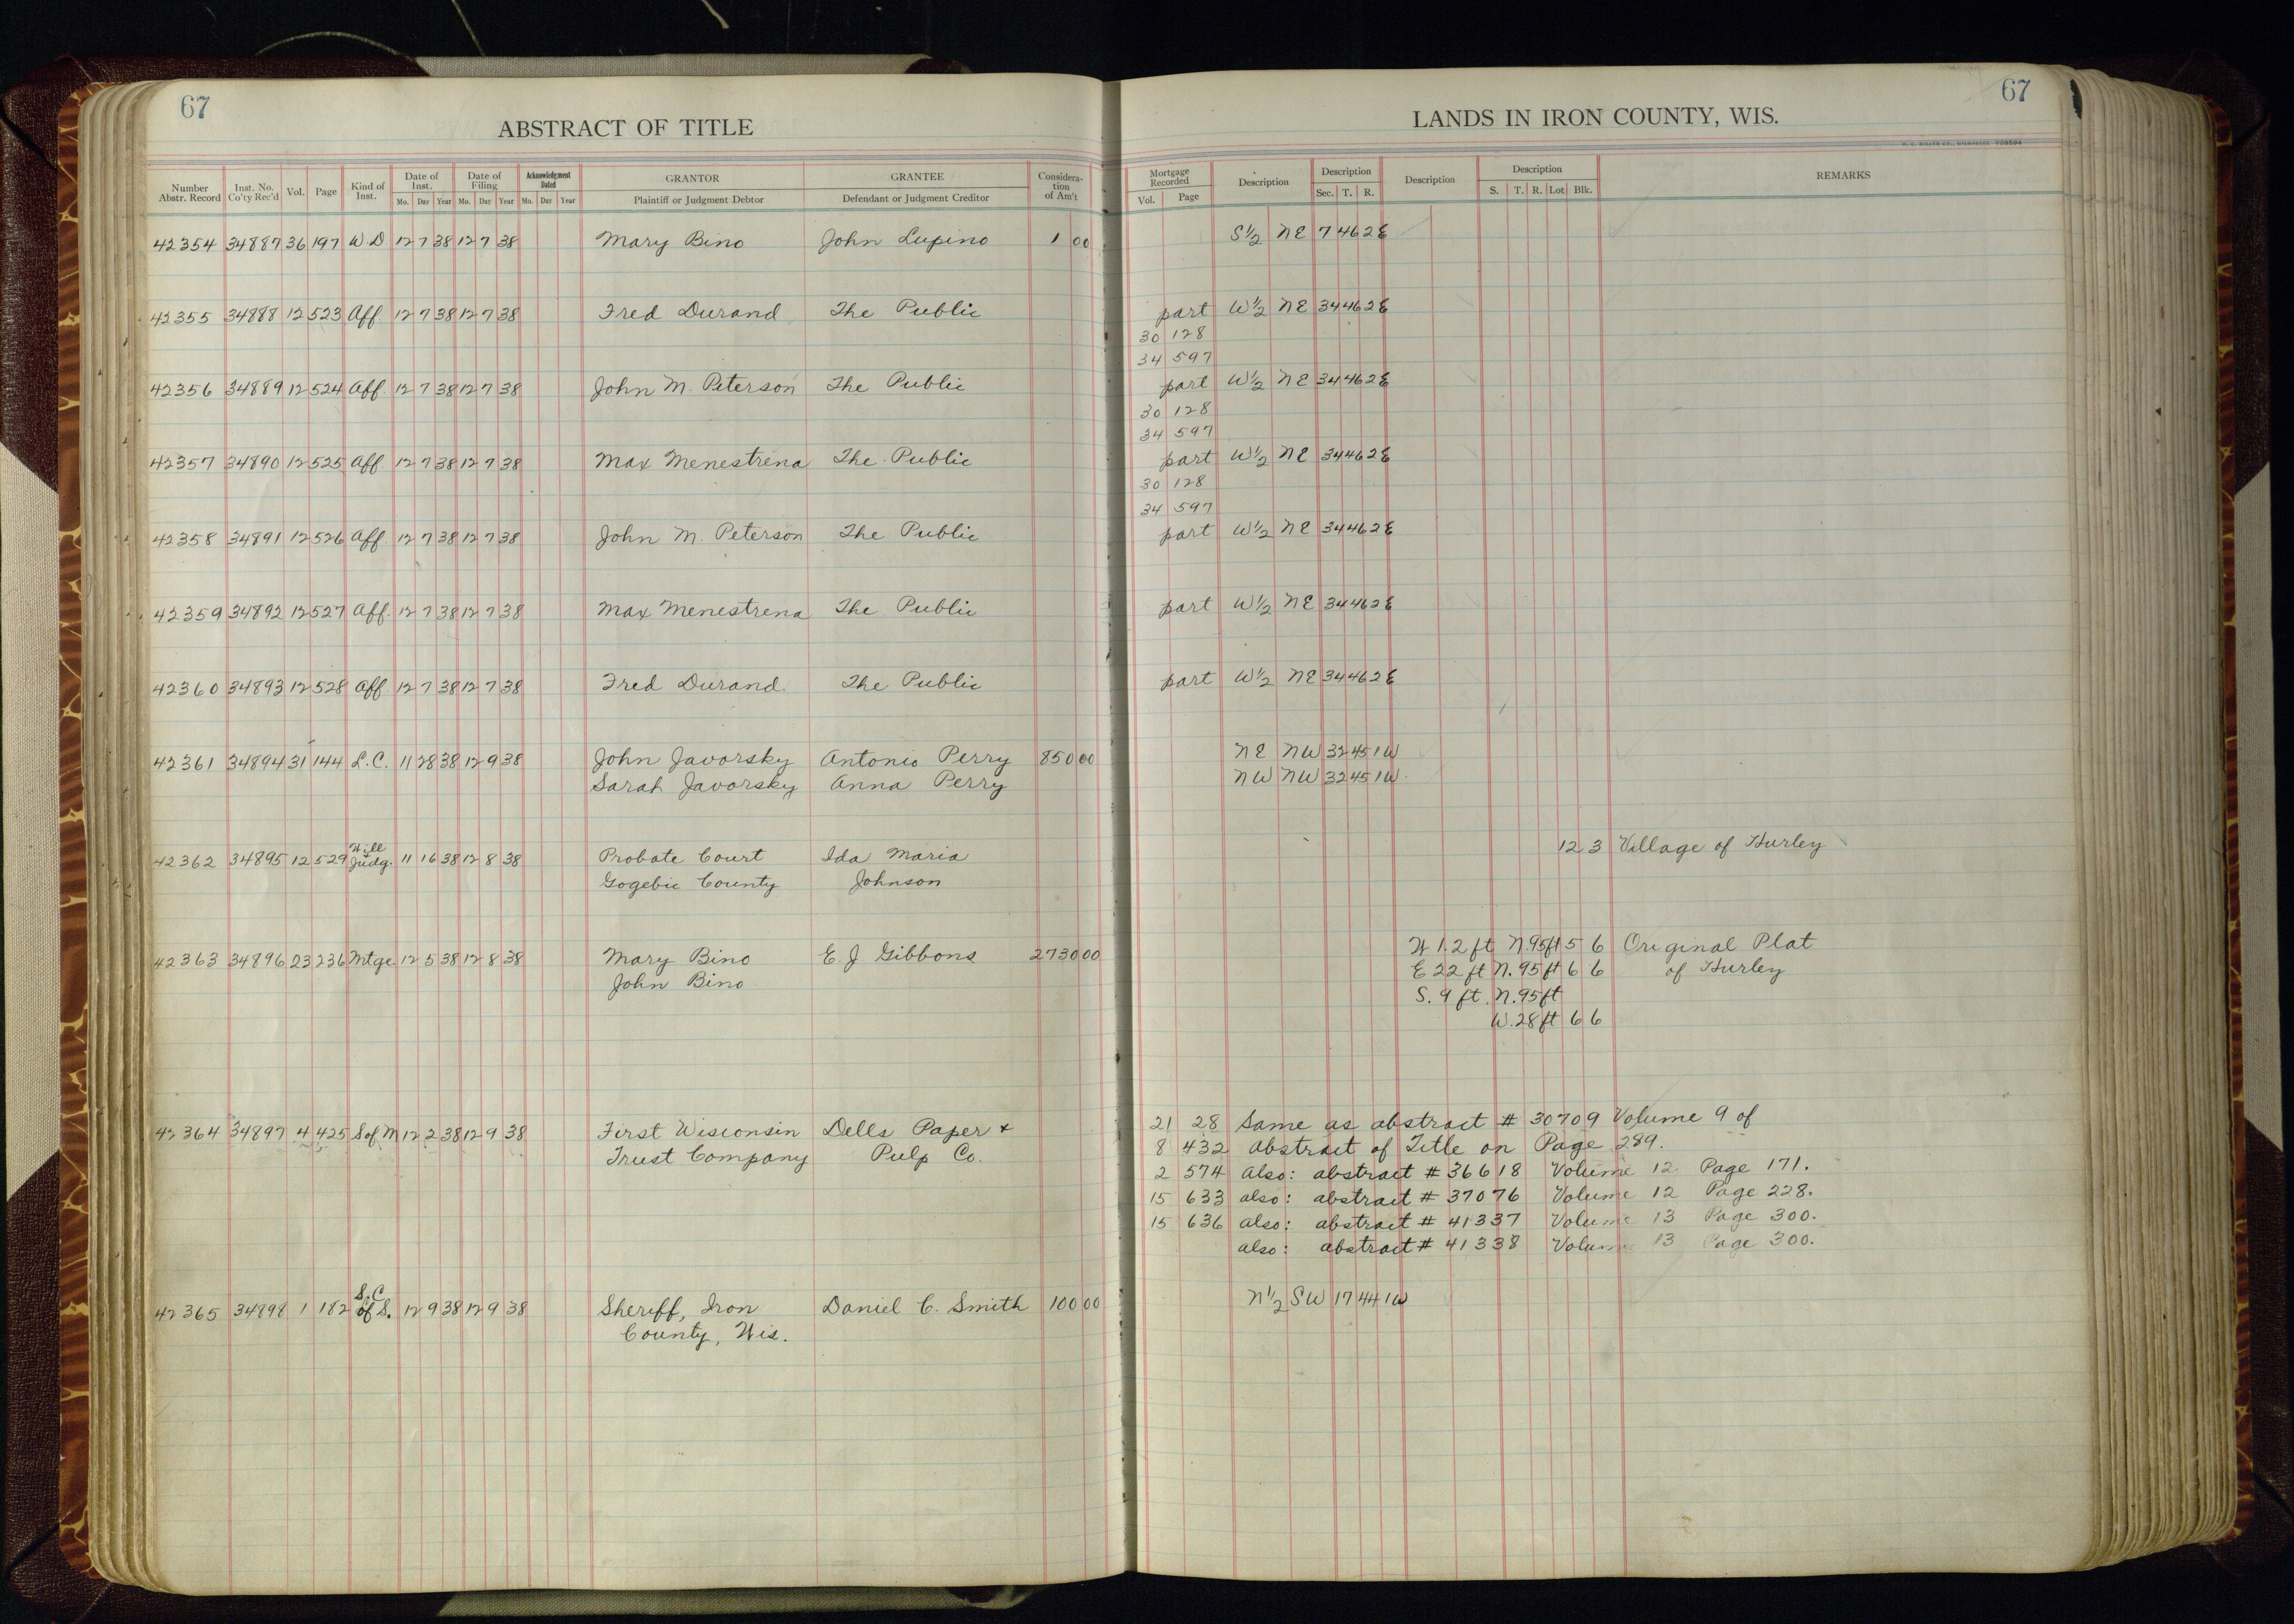 67
ABSTRACT OF TITLE
Number Abstr. Record Inst. No. Co'ty Rec'd Vol. Page Kind of Inst. Date of Inst. Mo. Day Year Date of Filing Mo. Day Year Acknowledgment Dated Mo. Day Year GRANTOR Plaintiff or Judgment Debtor GRANTEE Defendant or Judgment Creditor Consideration of Am't
42354 34887 36 197 W D 12 7 38 12 7 38 Mary Bino John Lupino 1 00
42355 34888 12 523 Aff 12 7 38 12 7 38 Fred Durand The Public
42356 34889 12 524 Aff. 12 7 38 12 7 38 John M. Peterson The Public
42357 34890 12 525 Aff 12 7 38 12 7 38 Max Menestrina The Public
42358 34891 12 526 Aff 12 7 38 12 7 38 John M. Peterson The Public
42359 34892 12 527 Aff. 12 7 38 12 7 38 Max Menestrena The Public
42360 34893 12 528 Aff. 12 7 38 12 7 38 Fred Durand The Public
42361 34894 31 144 L.C. 11 28 38 12 9 38 John Javorsky Antonio Perry 850 00
Sarah Javorsky Anna Perry
Will
42362 34895 12 529 Judg. 11 16 38 12 8 38 Probate Court Ida Maria
Gogebic County Johnson
42363 34896 23 236 Mtge 12 5 38 12 8 38 Mary Bino E. J. Gibbons 2730 00
John Bino
42364 34897 4 425 S of M 12 2 38 12 9 38 First Wisconsin Dells Paper &
Trust Company Pulp Co.
S.C.
42365 34898 1 182 of S. 12 9 38 12 9 38 Sheriff, Iron Daniel C. Smith 100 00
County, Wis.
67
LANDS IN IRON COUNTY, WIS.
H. C. MILLER CO., MILWAUKEE V28594
Mortgage Recorded Vol. Page Description Description Sec. T. R. Description Description S. T. R. Lot Blk. REMARKS
S 1/2 NE 7 46 2E
part W 1/2 NE 34 46 2E
30 128
34 597
part W 1/2 NE 34 46 2E
30 128
34 597
part W 1/2 NE 34 46 2E
30 128
34 597
part W 1/2 NE 34 46 2E
part W 1/2 NE 34 46 2E
part W 1/2 NE 34 46 2E
NE NW 32 45 1W
NW NW 32 45 1W
12 3 Village of Hurley
W 1.2 ft N.95ft 5 6 Original Plat
E 22 ft N.95ft 6 6 of Hurley
S. 9 ft. N.95ft
W.28ft 6 6
21 28 Same as abstract # 30709 Volume 9 of
8 432 Abstract of Title on Page 289.
2 574 also: abstract # 36618 Volume 12 Page 171.
15 633 also: abstract # 37076 Volume 12 Page 228.
15 636 also: abstract # 41337 Volume 13 Page 300.
also: abstract # 41338 Volume 13 Page 300.
N 1/2 SW 17 44 1W